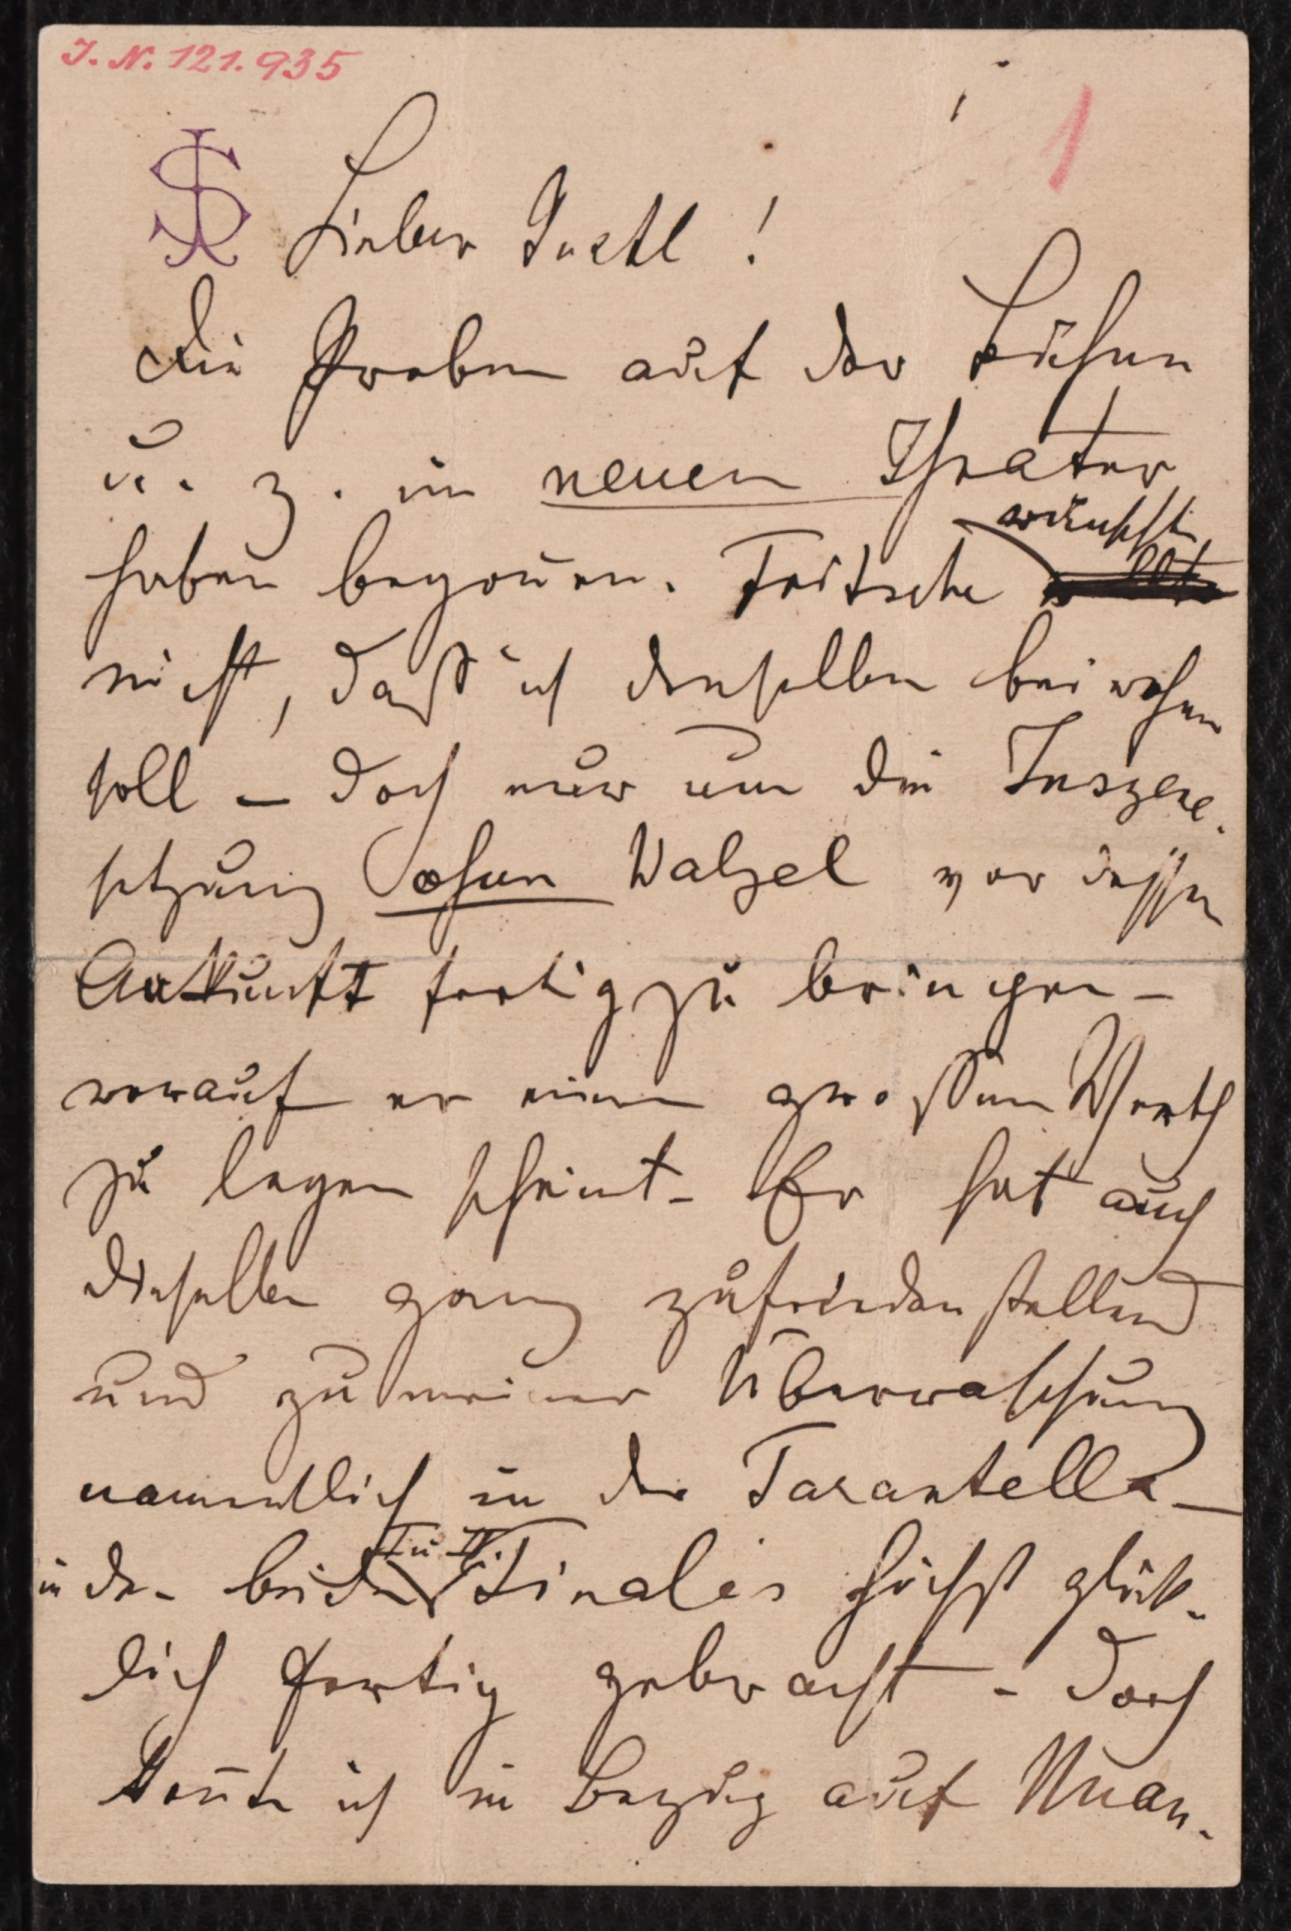 J. N. 121.935
1
JS
Lieber Gustl!
die Proben auf der Bühne
u. z. im neuen Theater
haben begoñen. Fritsche wünscht
nicht, daß ich denselben beiwohnen
soll – doch nur um die Inszene-
setzung ohne Walzel vor dessen
Ankunft fertig zu bringen –
worauf er einen großen Werth
zu legen scheint – Er hat auch
dieselbe ganz zufriedenstellend
und zu meiner Überraschung
namentlich in der Tarantella –
in den beiden I u II. Finales höchst glück-
lich fertig gebracht – doch
koñte ich in Bezug auf Nuan-